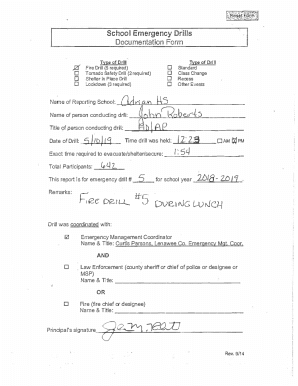 Reset Form
School Emergency Drills
Documentation Form
Type of Drill
Type of Drill
Fire Drill (5 required)
Standard
Tornado Safety Drill (2 required)
Class Change
Shelter in Place Drill
Recess
Lockdown (3 required)
Other Events
Name of Reporting School: Adrian HS
Name of person conducting drill: John Roberts
Title of person conducting drill: AD/AP
Date of Drill: 5/10/19 Time drill was held: 12:23 AM PM
Exact time required to evacuate/shelter/secure: 1:54
Total Participants: 642
This report is for emergency drill # 5 for school year 2018-2019
Remarks:
FIRE DRILL #5 DURING LUNCH
Drill was coordinated with:
Emergency Management Coordinator
Name & Title: Curtis Parsons, Lenawee Co. Emergency Mgt. Coor.
AND
Law Enforcement (county sheriff or chief of police or designee or
MSP)
Name & Title:
OR
Fire (fire chief or designee)
Name & Title:
Principal's signature
Rev. 5/14